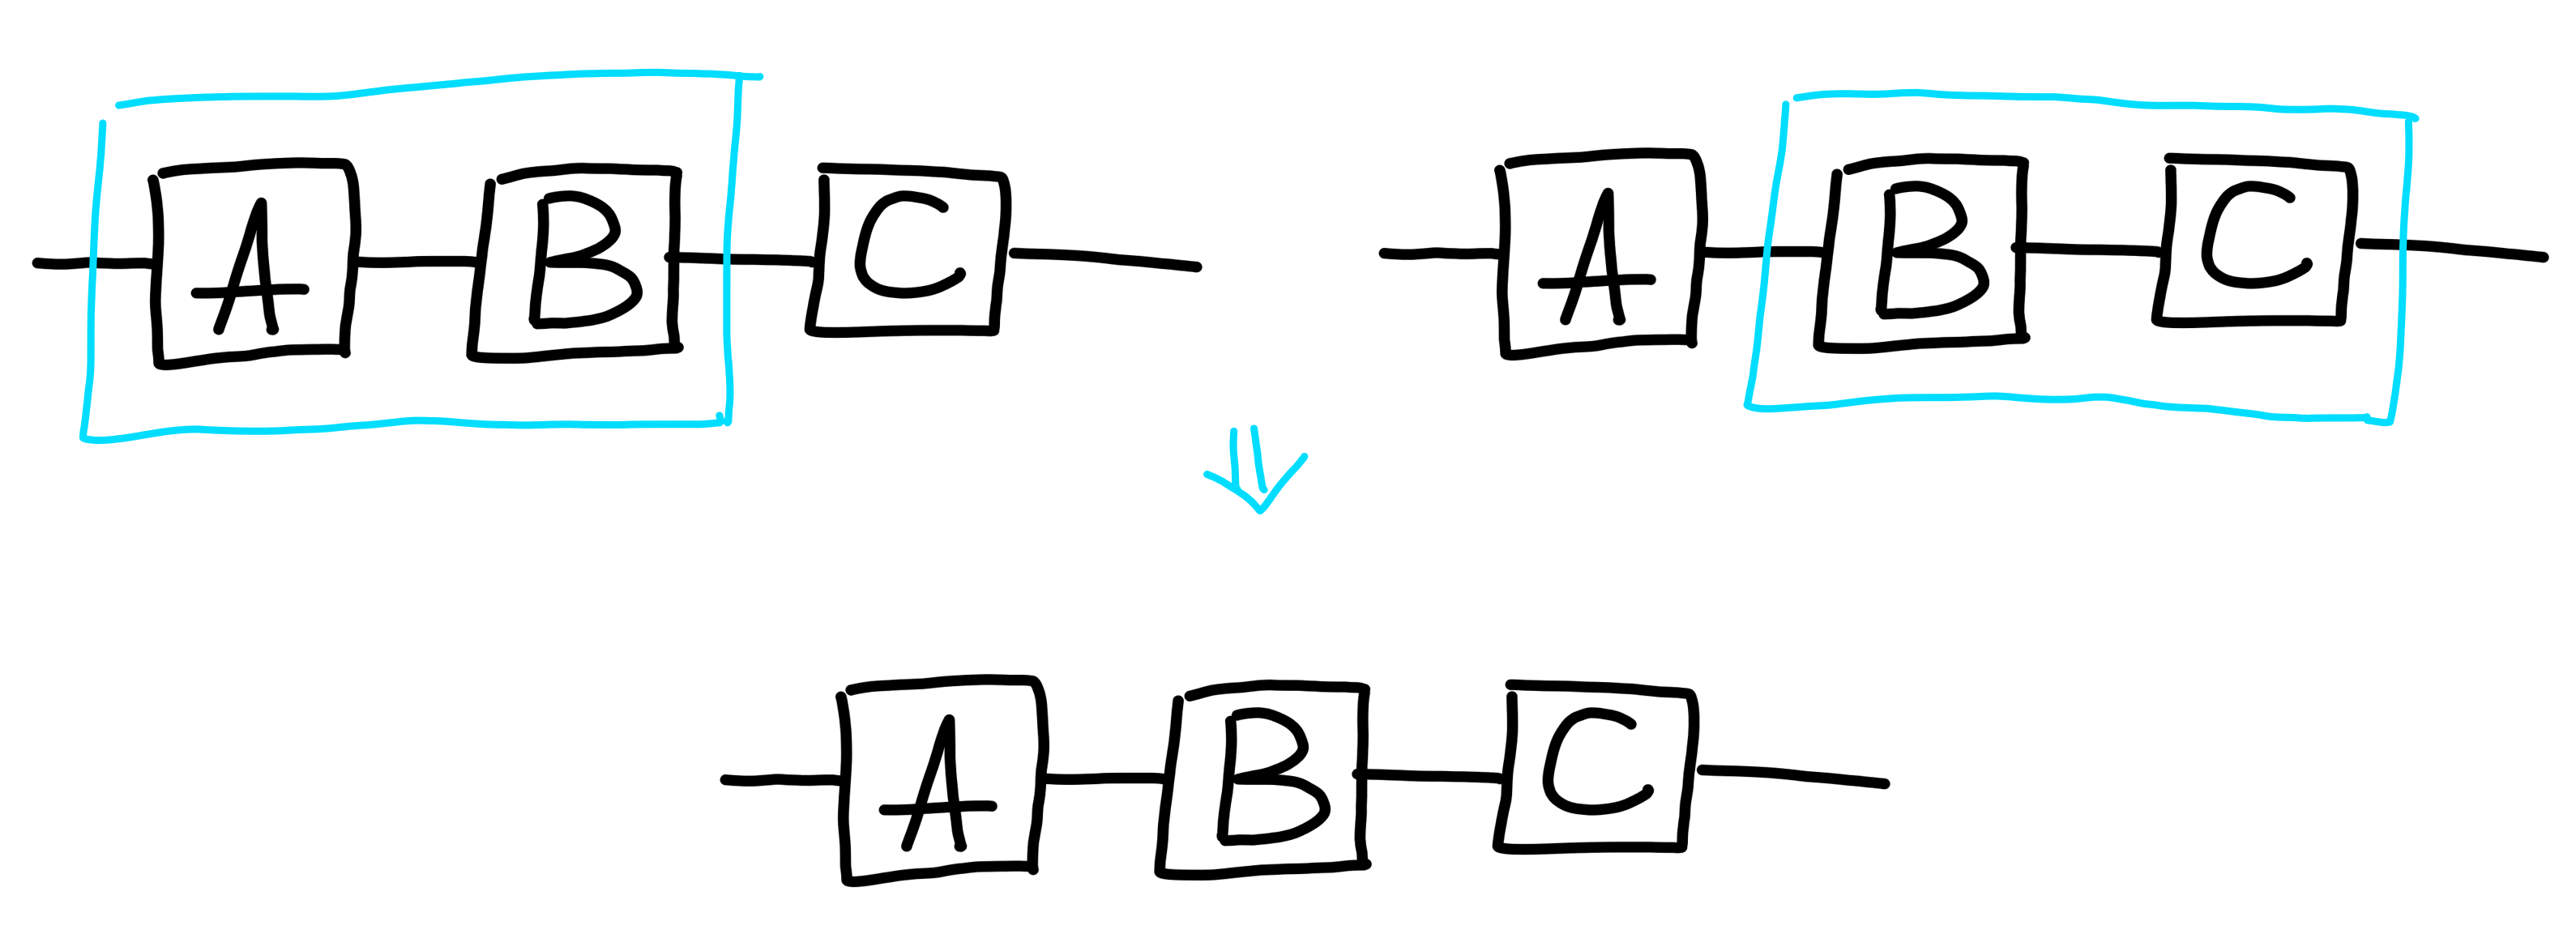 A B C A B C
A B C